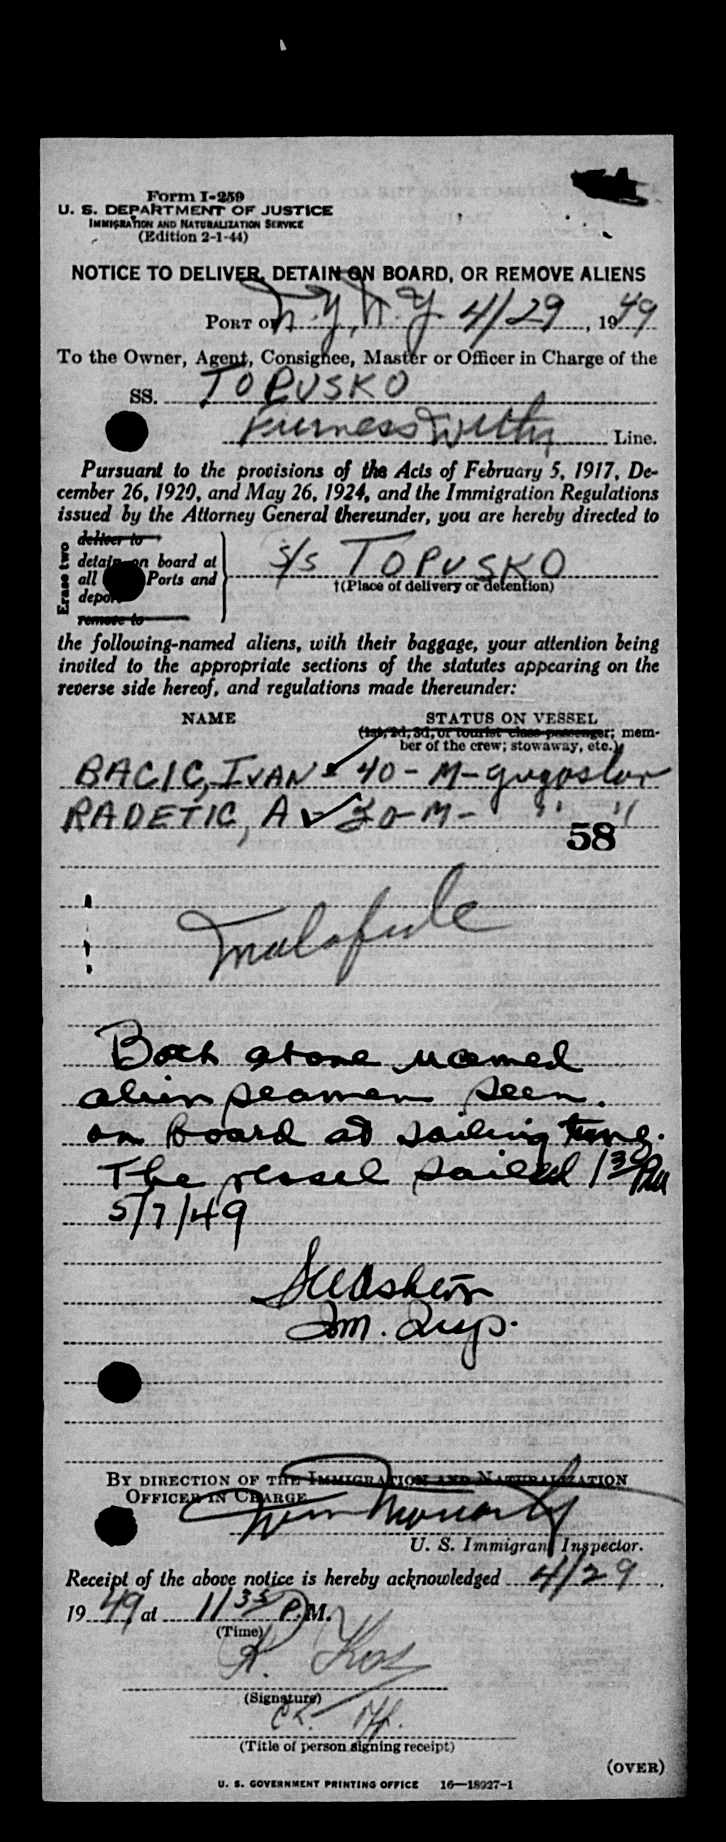 Form I-259
U. S. DEPARTMENT OF JUSTICE
IMMIGRATION AND NATURALIZATION SERVICE
(Edition 2-1-44)
NOTICE TO DELIVER, DETAIN ON BOARD, OR REMOVE ALIENS
PORT OF N.Y., N.Y. 4/29, 1949
To the Owner, Agent, Consignee, Master or Officer in Charge of the
SS. TOPUSKO
Furness Withy Line.
Pursuant to the provisions of the Acts of February 5, 1917, De-
cember 26, 1920, and May 26, 1924, and the Immigration Regulations
issued by the Attorney General thereunder, you are hereby directed to
Erase two
deliver to
detain on board at
all Ports and
deport
remove to
S/S TOPUSKO
†(Place of delivery or detention)
the following-named aliens, with their baggage, your attention being
invited to the appropriate sections of the statutes appearing on the
reverse side hereof, and regulations made thereunder:
NAME STATUS ON VESSEL
(1st, 2d, 3d, or tourist class passenger; mem-
ber of the crew; stowaway, etc.)
BACIC, IVAN 40 - M - Yugoslav
RADETIC, A - 30 - M - " "
58
Malafide
Both above named
alien seamen seen
on board at sailing time.
The vessel sailed 1 30 PM
5/7/49
Im. Insp.
BY DIRECTION OF THE IMMIGRATION AND NATURALIZATION
OFFICER IN CHARGE
Wm Moriarty
U. S. Immigrant Inspector.
Receipt of the above notice is hereby acknowledged 4/29,
1949, at 11 35 P.M.
(Time)
K. Kos
(Signature)
Ch. Off.
(Title of person signing receipt)
(OVER)
U. S. GOVERNMENT PRINTING OFFICE 16—18927-1